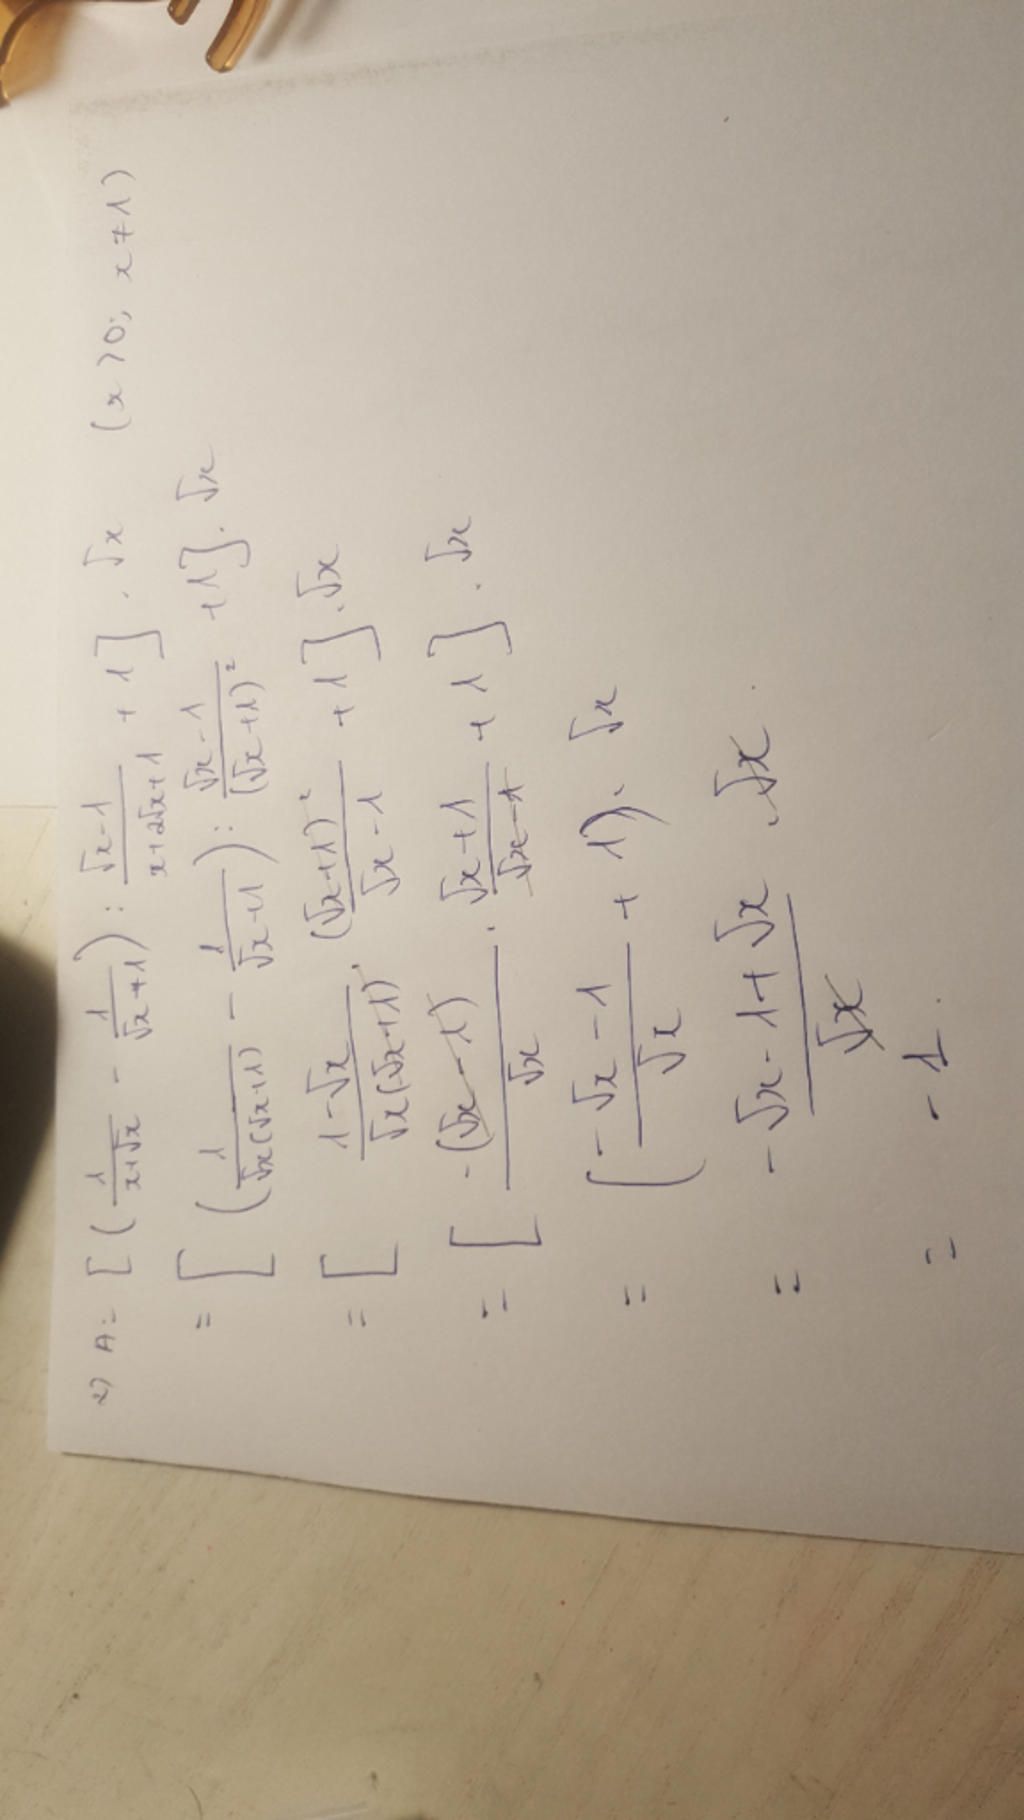 2) A = [(1/(x+√x) - 1/(√x+1)) : (√x-1)/(x+2√x+1) + 1] . √x (x>0; x≠1)
= [(1/(√x(√x+1)) - 1/(√x+1)) : (√x-1)/(√x+1)² + 1] . √x
= [(1-√x)/(√x(√x+1)) . (√x+1)²/(√x-1) + 1] . √x
= [-(√x-1)/√x . (√x+1)/(√x-1) + 1] . √x
= ((-√x-1)/√x + 1) . √x
= (-√x-1+√x)/√x . √x .
= -1.